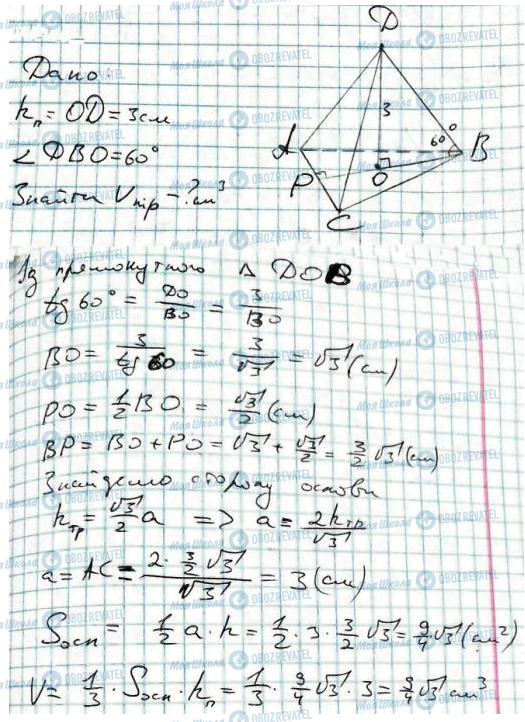 Дано:
hп = OD = 3 см
∠DBO = 60°
Знайти Vпір - ? см³
D
3
60°
A
B
P
O
C
Із прямокутного △ DOB
tg 60° = DO/BO = 3/BO
BO = 3/tg 60 = 3/√3 = √3 (см)
PO = 1/2 BO = √3/2 (см)
BP = BO + PO = √3 + √3/2 = 3/2 √3 (см)
Знайдемо сторону основи
hтр = √3/2 a => a = 2hтр/√3
a = AC = 2 · 3/2 √3/√3 = 3 (см)
Sосн = 1/2 a · h = 1/2 · 3 · 3/2 √3 = 9/4 √3 (см²)
V = 1/3 · Sосн · hп = 1/3 · 9/4 √3 · 3 = 9/4 √3 см³
Моя Школа OBOZREVATEL